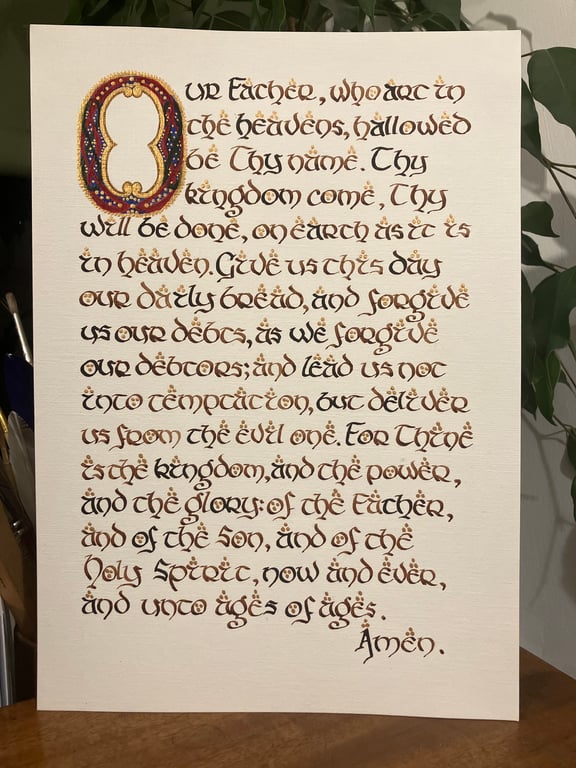 Our Father, who art in
the heavens, hallowed
be Thy name. Thy
kingdom come, Thy
will be done, on earth as it is
in heaven. Give us this day
our daily bread, and forgive
us our debts, as we forgive
our debtors; and lead us not
into temptation, but deliver
us from the evil one. For Thine
is the kingdom, and the power,
and the glory: of the Father,
and of the Son, and of the
Holy Spirit, now and ever,
and unto ages of ages.
Amen.